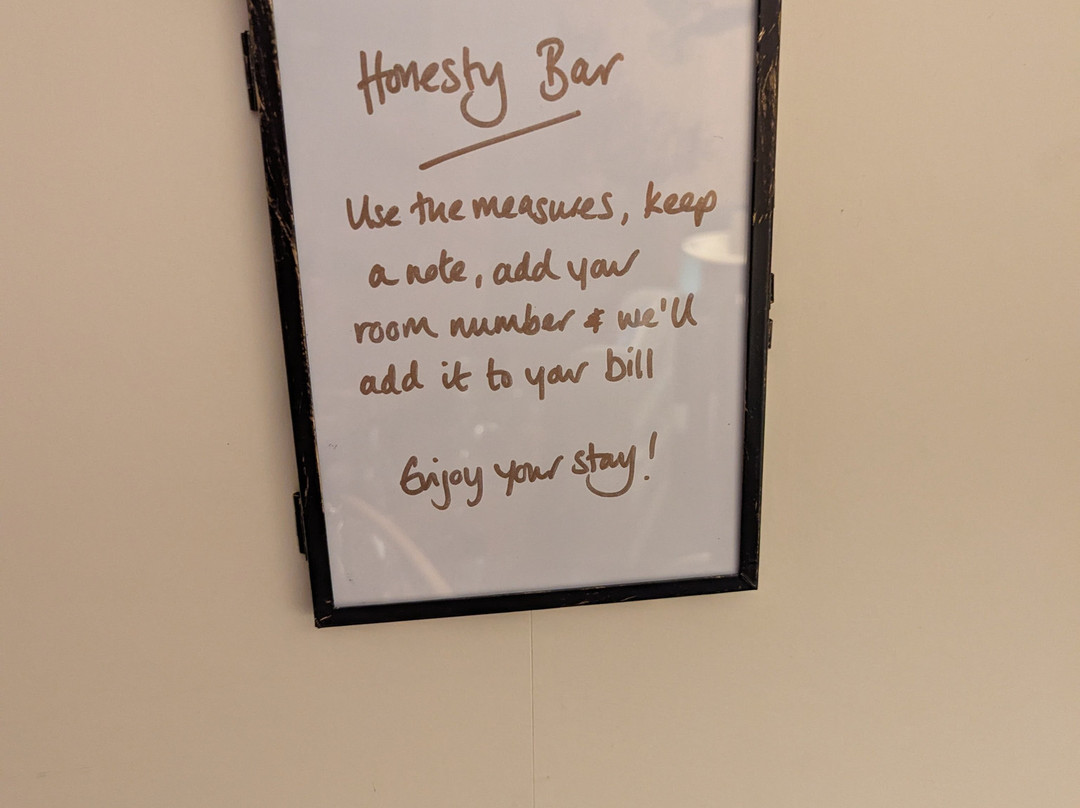 Honesty Bar
Use the measures, keep
a note, add your
room number & we'll
add it to your bill
Enjoy your stay!